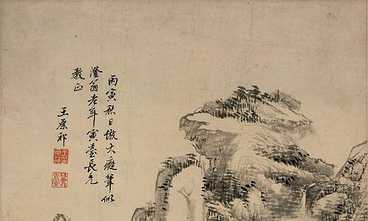 丙寅秋日倣大癡筆似
澄翁老年寅臺長兄
教正
王原祁